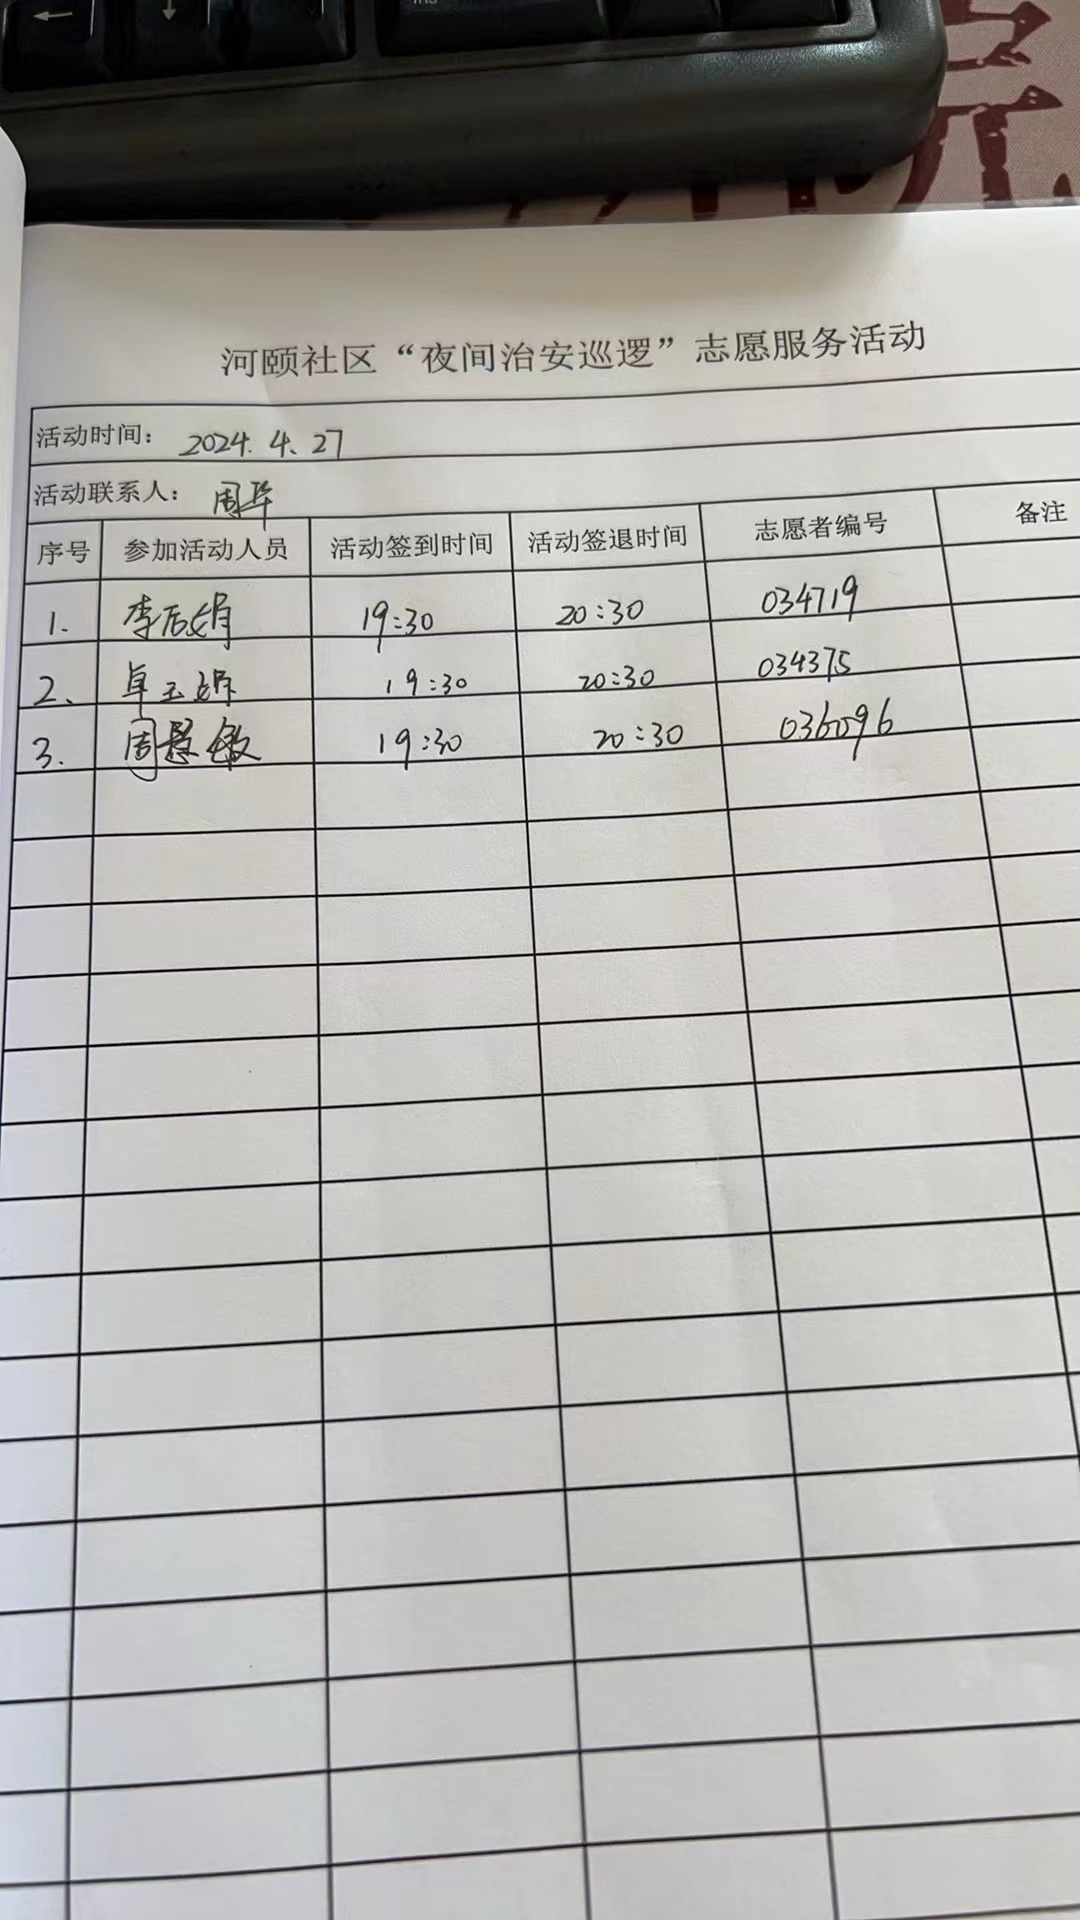 Ins
河颐社区“夜间治安巡逻”志愿服务活动
活动时间: 2024.4.27
活动联系人: 周华
序号 参加活动人员 活动签到时间 活动签退时间 志愿者编号 备注
1. 李后娟 19:30 20:30 034719
2、 卓玉娟 19:30 20:30 034375
3. 周慧敏 19:30 20:30 036096